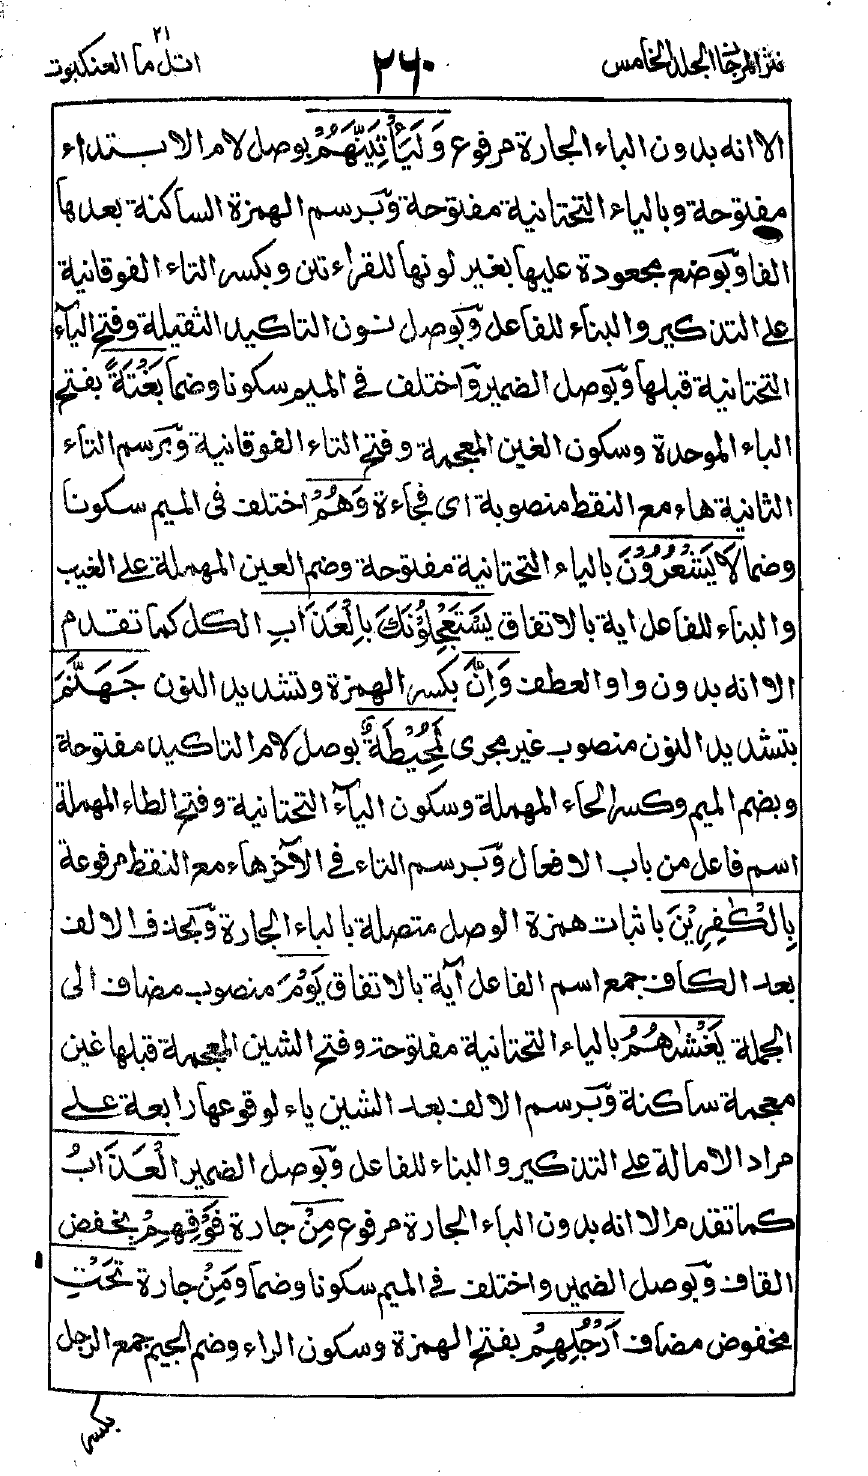 نثر المرجان المجلد الخامس
٢٦٠
٢١
اتل ما العنكبوت
الا انه بدون الباء الجارة مرفوع وَلَيَأْتِيَنَّهُمْ بوصل لام الابتداء
مفتوحة وبالياء التحتانية مفتوحة وبرسم الهمزة الساكنة بعدها
الفا وبوضع مجعودة عليها بغير لونها للقراءتين وبكسر التاء الفوقانية
على التذكير والبناء للفاعل وبوصل نون التاكيد الثقيلة وفتح الياء
التحتانية قبلها وبوصل الضمير واختلف في الميم سكونا وضما بَغْتَةً بفتح
الباء الموحدة وسكون الغين المعجمة وفتح التاء الفوقانية وبرسم التاء
الثانية هاء مع النقط منصوبة اى فجاءة وَهُمْ اختلف فى الميم سكونا
وضما لَا يَشْعُرُوْنَ بالياء التحتانية مفتوحة وضم العين المهملة على الغيب
والبناء للفاعل اية بالاتفاق يَسْتَعْجِلُوْنَكَ بِالْعَذَابِ الكل كما تقدم
الا انه بدون واو العطف وَاِنَّ بكسر الهمزة وتشديد النون جَهَنَّمَ
بتشديد النون منصوب غير مجرى لَمُحِيْطَةٌ بوصل لام التاكيد مفتوحة
وبضم الميم وكسر الحاء المهملة وسكون الياء التحتانية وفتح الطاء المهملة
اسم فاعل من باب الافعال وبرسم التاء في الآخر هاء مع النقط مرفوعة
بِالْكٰفِرِيْنَ باثبات همزة الوصل متصلة بالباء الجارة وبحذف الالف
بعد الكاف جمع اسم الفاعل آية بالاتفاق يَوْمَ منصوب مضاف الى
الجملة يَغْشٰهُمُ بالياء التحتانية مفتوحة وفتح الشين المعجمة قبلها غين
معجمة ساكنة وبرسم الالف بعد الشين ياء لوقوعها رابعة على
مراد الامالة على التذكير والبناء للفاعل وبوصل الضمير الْعَذَابُ
كما تقدم الا انه بدون الباء الجارة مرفوع مِنْ جارة فَوْقِهِمْ بخفض
القاف وبوصل الضمير واختلف في الميم سكونا وضما وَمِنْ جارة تَحْتِ
مخفوض مضاف اَرْجُلِهِمْ بفتح الهمزة وسكون الراء وضم الجيم جمع الرجل
بكسر